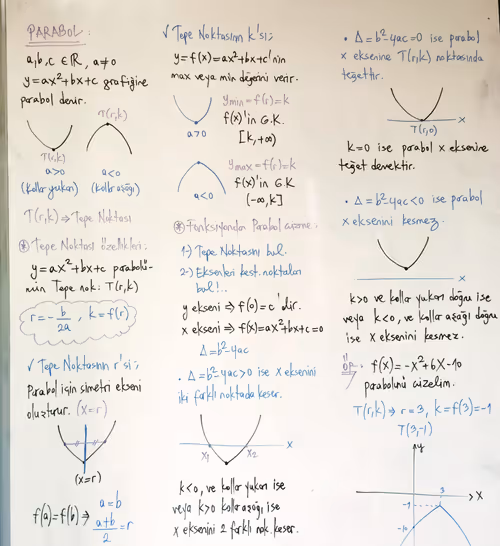 PARABOL:
a,b,c ∈ ℝ, a≠0
y=ax²+bx+c grafiğine
parabol denir.
T(r,k)
T(r,k)
a>0
a<0
(kollar yukarı)
(kollar aşağı)
T(r,k) ⇒ Tepe Noktası
⊛ Tepe Noktası özellikleri:
y=ax²+bx+c parabolü-
nün Tepe nok: T(r,k)
r=-b/2a, k=f(r)
✓ Tepe Noktasının r'si;
Parabol için simetri ekseni
oluşturur. (x=r)
(x=r)
f(a)=f(b) ⇒ a=b
a+b/2=r
✓ Tepe Noktasının k'sı;
y=f(x)=ax²+bx+c'nin
max veya min değerini verir.
a>0
ymin=f(r)=k
f(x)'in G.K
[k,+∞)
a<0
ymax=f(r)=k
f(x)'in G.K
(-∞,k]
⊛ Fonksiyondan Parabol çizme:
1-) Tepe Noktasını bul.
2-) Eksenleri kest. noktaları
bul!..
y ekseni ⇒ f(0)=c'dir.
x ekseni ⇒ f(x)=ax²+bx+c=0
Δ=b²-4ac
• Δ=b²-4ac>0 ise x eksenini
iki farklı noktada keser.
x₁
x₂
x
k<0, ve kollar yukarı ise
veya k>0 kollar aşağı, ise
x eksenini 2 farklı nok. keser.
• Δ=b²-4ac=0 ise parabol
x eksenine T(r,k) noktasında
teğettir.
T(r,0)
x
k=0 ise parabol x eksenine
teğet demektir.
• Δ=b²-4ac<0 ise parabol
x eksenini kesmez.
x
k>0 ve kollar yukarı doğru ise
veya k<0, ve kollar aşağı doğru
ise x eksenini kesmez.
f(x)=-x²+6x-10
parabolünü çizelim.
T(r,k) ⇒ r=3, k=f(3)=-1
T(3,-1)
y
3
x
-1
-10